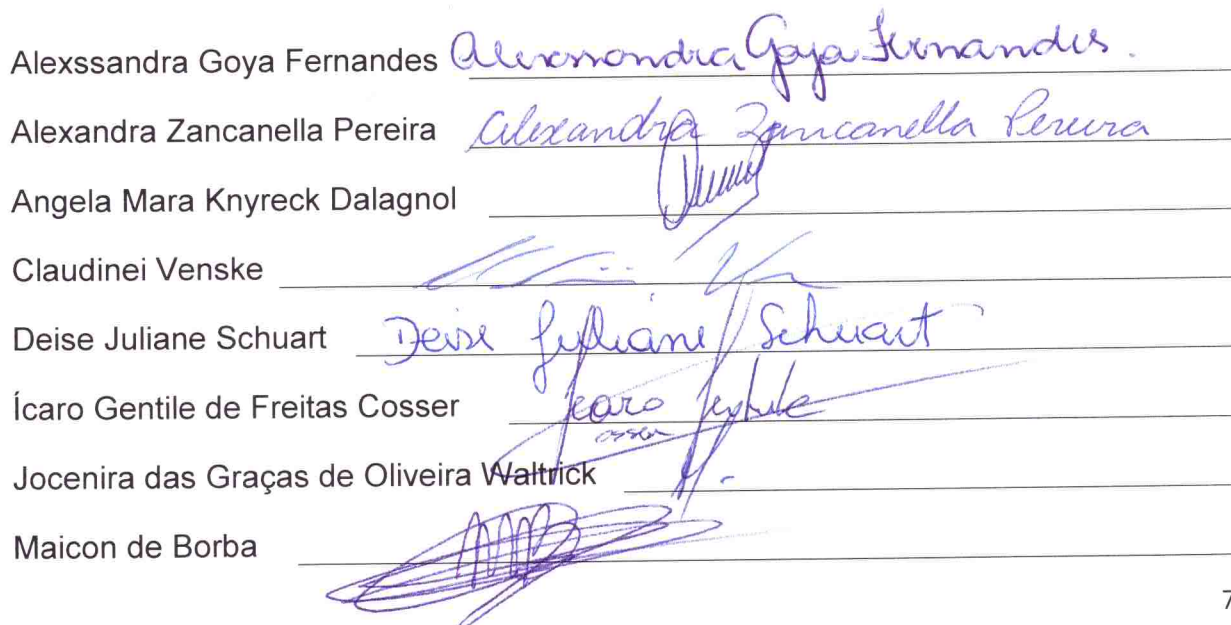 Alexssandra Goya Fernandes Alexssandra Goya Fernandes.
Alexandra Zancanella Pereira Alexandra Zancanella Pereira
Angela Mara Knyreck Dalagnol
Claudinei Venske
Deise Juliane Schuart Deise Juliane Schuart
Ícaro Gentile de Freitas Cosser Icaro Gentile Cosser
Jocenira das Graças de Oliveira Waltrick
Maicon de Borba
7